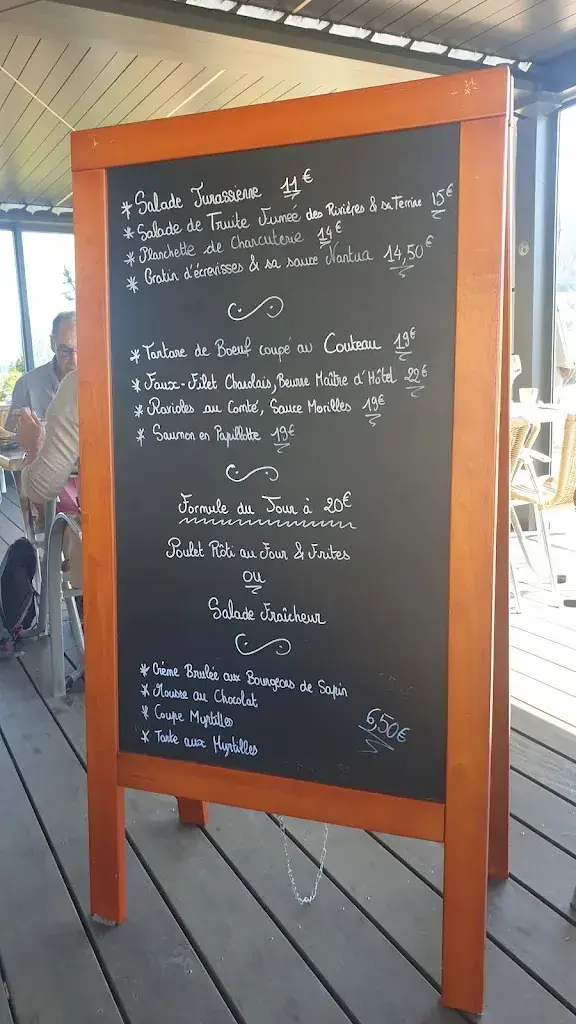 * Salade Jurassienne 11€
* Salade de Truite Fumée des Rivières & sa Terrine 15€
* Planchette de Charcuterie 14€
* Gratin d'écrevisses & sa sauce Nantua 14,50€
* Tartare de Boeuf coupé au Couteau 19€
* Faux-Filet Charolais, Beurre Maître d'Hôtel 22€
* Ravioles au Comté, Sauce Morilles 19€
* Saumon en Papillotte 19€
Formule du Jour à 20€
Poulet Rôti au Four & Frites
ou
Salade Fraîcheur
* Crème Brulée aux Bourgeons de Sapin
* Mousse au Chocolat
* Coupe Myrtilles
6,50€
* Tarte aux Myrtilles